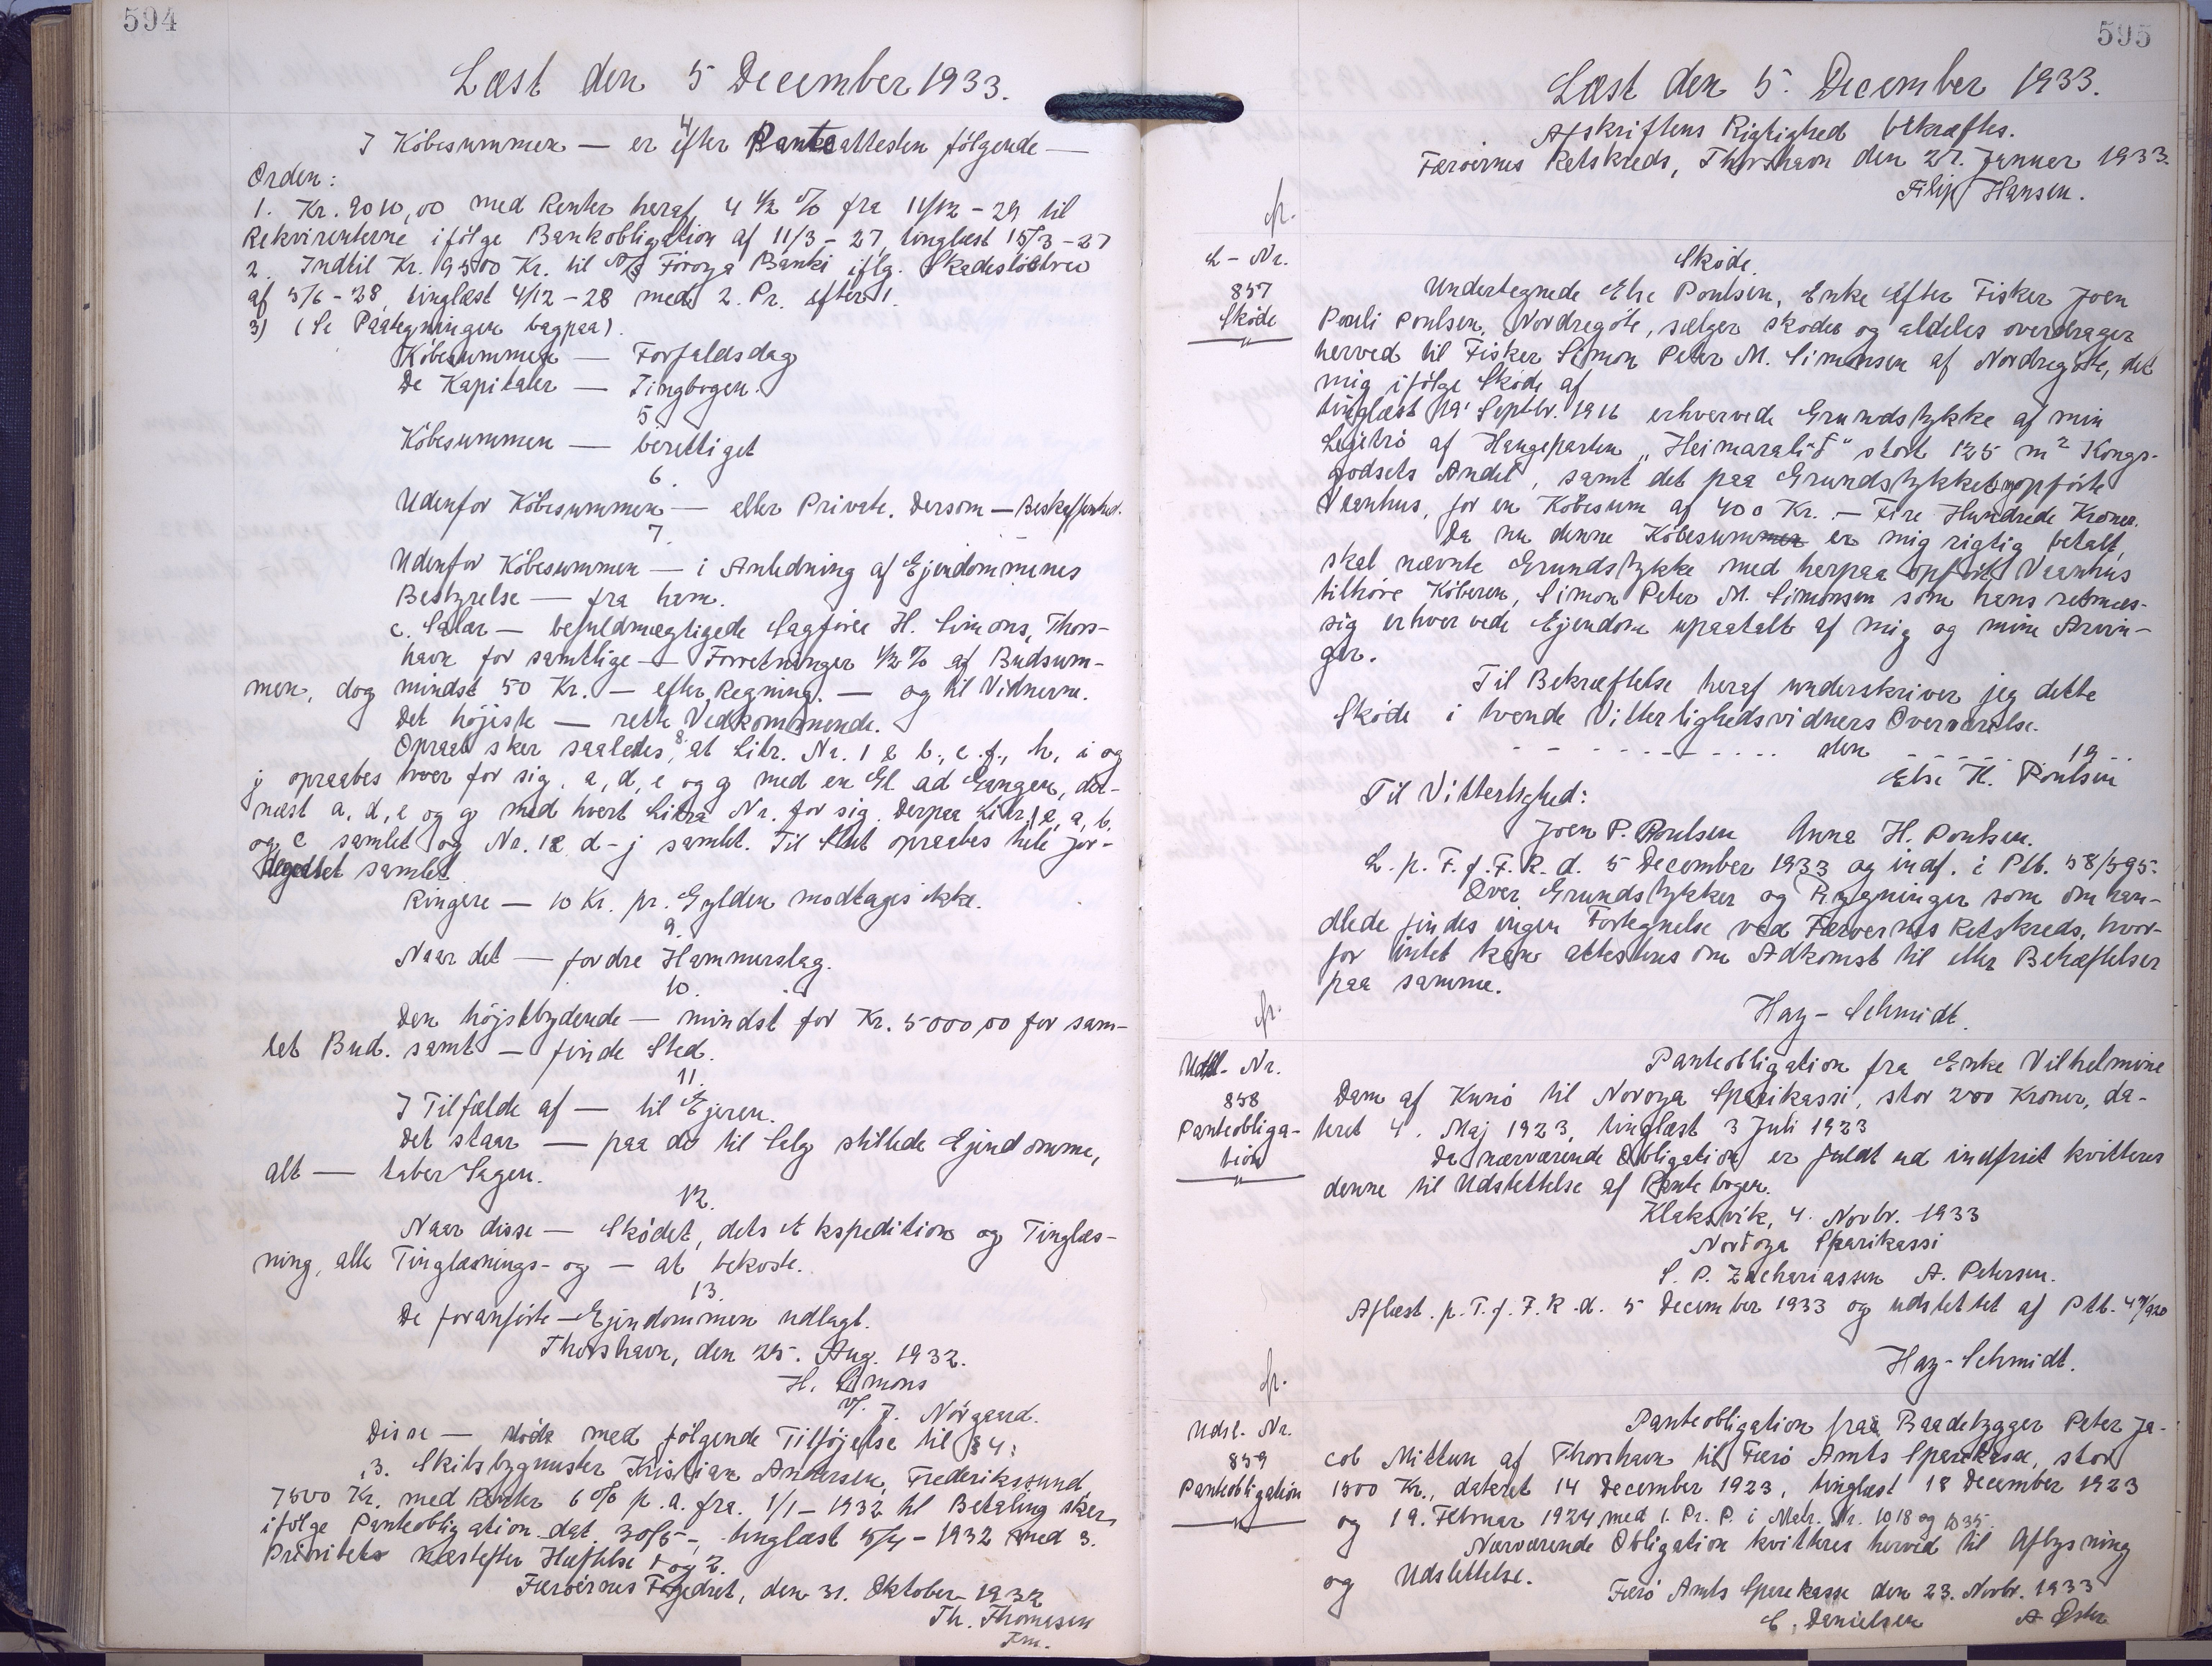 594
Læst den 5 December 1933.
4
I Köbesummen — er efter Panteattesten fölgende —
Orden:
1. Kr. 9010,00 med Renter heraf 4 ½ % fra 11/12 - 29 til
Rekvirenterne ifölge Bankobligation af 11/3 - 27, tinglæst 15/3 - 27
2. Indtil Kr. 19500 Kr. til A/S Föroya Banki iflg. Skadeslösbrev
af 5/6 - 28, tinglæst 4/12 - 28 med 2. Pr. efter 1.
3) (Se Paategningen bagpaa).
Köbesummen — Forfaldsdag
De Kapitaler — Tingbogen.
5
Köbesummen — berettiget
6.
Udenfor Köbesummen — eller Private. Dersom — Beskaffenhed.
7.
Udenfor Köbesummen — i Anledning af Ejendommenes
Bestyrelse — fra ham.
c. Salær — befuldmægtigede Sagförer H. Simons, Thors-
havn for samtlige — Forretninger ½ % af Budsum-
men, dog mindst 50 Kr. — efter Regning. — og til Vidnerne.
Det höjeste — rette Vedkommende.
8.
Opraab sker saaledes, at Litr. Nr. 1 a b., c. f., h, i og
j opraabes hver for sig, a, d, e og g med en Gl. ad Gangen, der-
næst a, d, e og g med hvert Litra Nr. for sig. Derpaa Litr. 1 a, a, b.
og c samlet og Nr. 12 d - j samlet. Til Slut opraabes hele Jor-
degodset samlet.
Ringere — 10 Kr. pr. Gylden modtages ikke.
9.
Naar det — fordre Hammerslag.
10.
Den höjstbydende — mindst for Kr. 5000,00 for sam-
let Bud. samt — finde Sted.
11.
I Tilfælde af — til Ejeren.
Det staar — paa de til Salg stillede Ejendomme,
alt — taber Sagen.
12.
Naar disse — Sködet, dets Ekspedition og Tinglæs-
ning, alle Tinglæsnings- og — at bekoste.
13.
De foranförte — Ejendommen udlagt.
Thorshavn, den 25. Aug. 1932.
H. Simons
v/. J. Nörgaard.
Disse — med fölgende Tilföjelse til § 4:
,3. Skibsbygmester Kristian Andersen, Frederikssund,
7500 Kr. med Renter 6 % p. a. fra. 1/1 - 1932 til Betaling sker
ifölge Panteobligation dat. 30/5 -, tinglæst 5/7 - 1932 med 3.
Prioritets næstefter Hæftelse 1 og 2.
Færöernes Fogedret, den 31. Oktober 1932
Th. Thomasen
Fm.
595
Læst den 5. December 1933.
Afskriftens Rigtighed bekræftes.
Færöernes Retskreds, Thorshavn den 27. Januar 1933.
Filip Hansen.
fr.
L - Nr.
857
Sköde
Sköde.
Undertegnede Else Poulsen, Enke efter Fisker Joen
Pouli Poulsen, Nordregöte, sælger sköder og aldeles overdrager
herved til Fisker Simon Peter M. Simonsen af Nordregöte, det
mig ifölge Sköde af
tinglæst 19' Septbr. 1916 erhvervede Grundstykke af min
af Haugeparten „Heimaraliδ" stort 125 m² Kongs-
godsets Andel, samt det paa Grundstykket opförte
Vaanhus, for en Köbesum af 400 Kr. — Fire Hundrede Kroner.
Da nu denne Köbesummen er mig rigtig betalt,
skal nævnte Grundstykke med herpaa opfört Vaanhus
tilhöre Köberen, Simon Peter M. Simonsen som hans retmæs-
sig erhvervede Ejendom upaatalt af mig og mine Arvin-
ger.
Til Bekræftelse heraf underskriver jeg dette
Sköde i tvende Vitterlighedsvidners Overværelse.
- - - - - - - - - - - - den - - - - - - 19 - -
Else H. Poulsen
Til Vitterlighed:
Joen P. Poulsen Anna H. Poulsen.
L. p. T. f. F. R. d. 5 December 1933 og indf. i Ptb. 58/595.
Over Grundstykker og Bygninger som om han-
dlede findes ingen Fortegnelse ved Færöernes Retskreds, hvor-
for intet kan attesteres om Adkomst til eller Behæftelser
paa samme.
Hay - Schmidt.
fr.
Udsl. Nr.
858
Panteobliga-
tion
Panteobligation fra Enke Vilhelmine
Dam af Kunö til Noroya Sparikassi, stor 200 Kroner, da-
teret 4. Maj 1923, tinglæst 3 Juli 1923
Da nærværende Obligation er fuldt ud indfriet kvitteres
denne til Udslettelse af Pantebogen.
Klaksvik, 4. Novbr. 1933
Norδoya Sparikassi
S. P. Zachariassen A. Petersen.
Aflæst. p. T. f. F. R. d. 5 December 1933 og udslettet af Ptb.
Hay - Schmidt.
fr.
Udsl. Nr.
859
Panteobligation
Panteobligation fra Baadebygger Peter Ja-
cob Mittun af Thorshavn til Færö Amts Sparekasse, stor
1500 Kr., dateret 14 December 1923, tinglæst 18 December 1923
og 19. Februar 1924 med 1. Pr. P. i Matr. Nr. 1018 og 1035.
Nærværende Obligation kvitteres herved til Aflysning
og Udslettelse.
Færö Amts Sparekasse den 23. Novbr. 1933
E. Danielsen